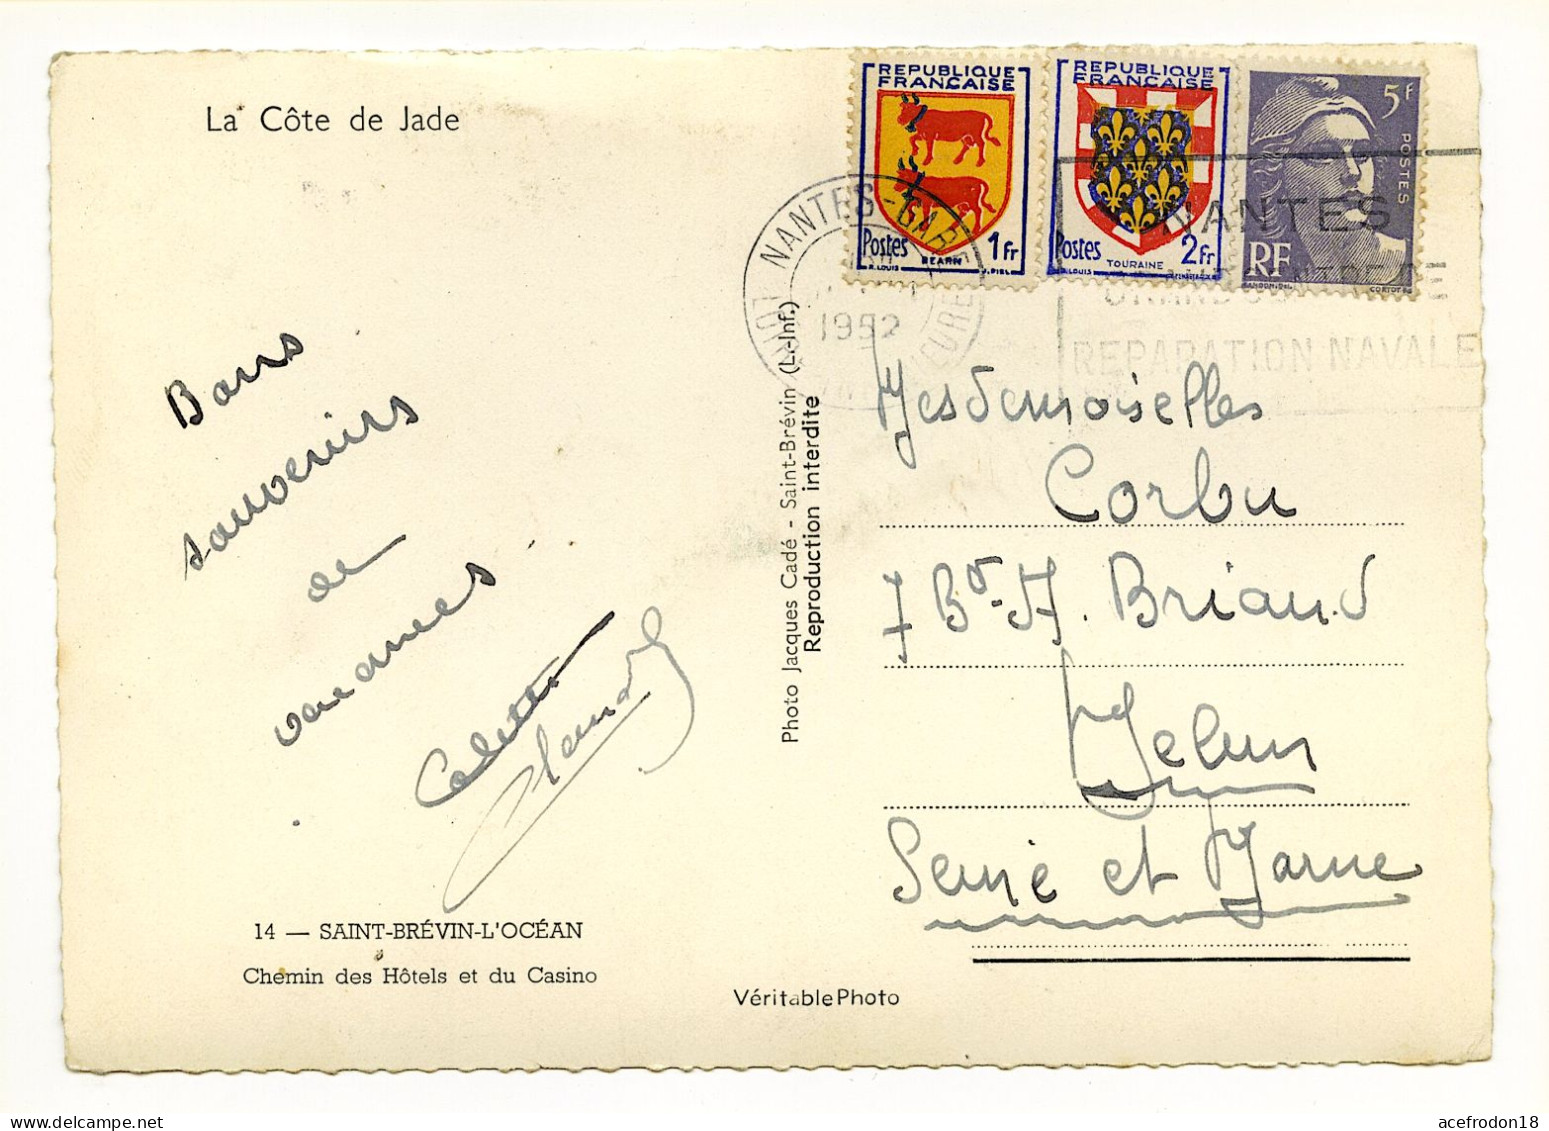 La Côte de Jade
Bons
souvenirs
de
vacances
Colette
Claude
14 — SAINT-BRÉVIN-L'OCÉAN
Chemin des Hôtels et du Casino
VéritablePhoto
Photo Jacques Cadé - Saint-Brévin (L.-Inf.)
Reproduction interdite
REPUBLIQUE
FRANÇAISE
Postes 1Fr
BEARN
R.LOUIS J.PIEL
REPUBLIQUE
FRANÇAISE
Postes 2Fr
TOURAINE
R.LOUIS
5F
POSTES
RF
GANDON.DEL CORTOT.SC
NANTES-GARE
1952
NANTES
GRAND CENTRE DE
REPARATION NAVALE
Mesdemoiselles
Corbu
7 Bd. A. Briand
Melun
Seine et Marne
acefrodon18